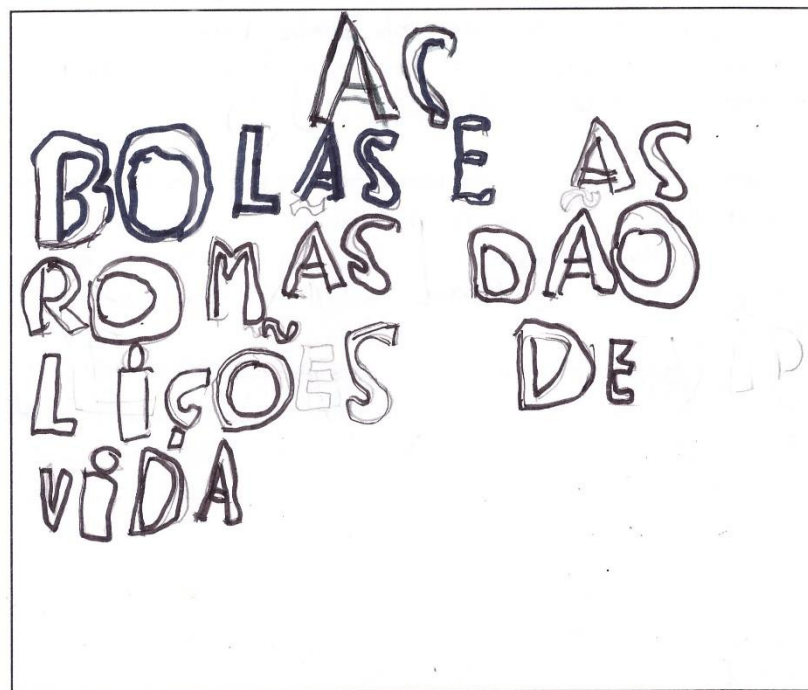 AS
BOLAS E AS
ROMÃS DÃO
LIÇÕES DE
VIDA